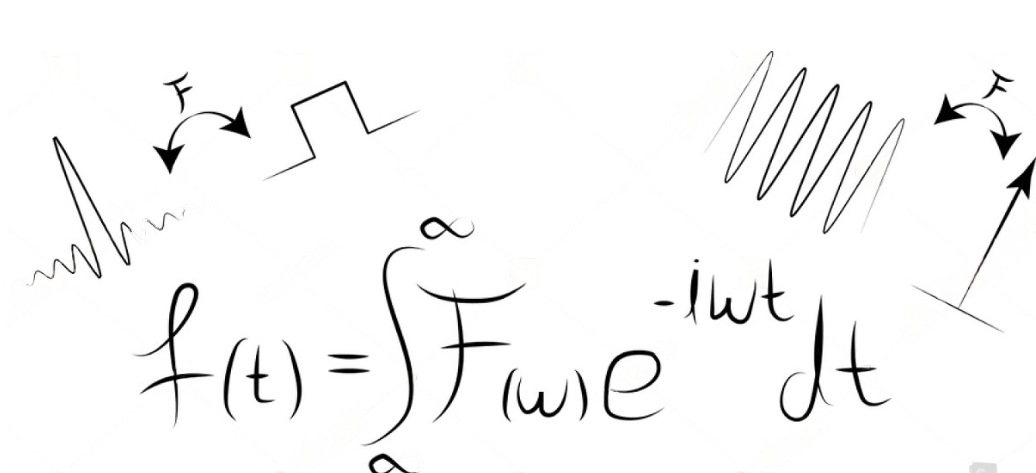 F F
∞
f(t) = ∫ F(w) e^{-iwt} dt
∞